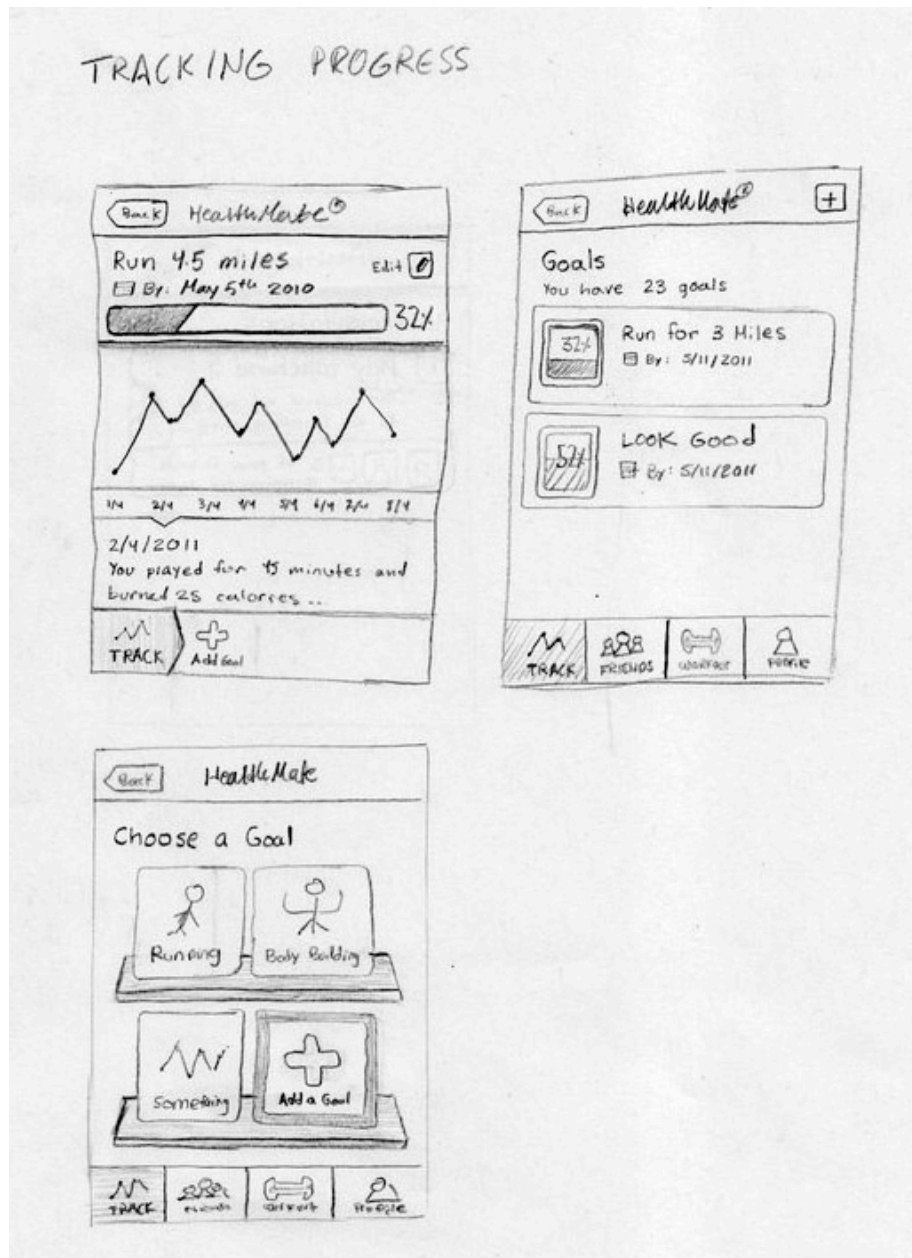 TRACKING PROGRESS
Back HealthMate®
Run 4.5 miles
Edit
By: May 5th 2010
32%
1/4 2/4 3/4 4/4 5/4 6/4 7/4 8/4
2/4/2011
You played for 45 minutes and
burned 25 calories...
TRACK Add Goal
Back HealthMate® +
Goals
You have 23 goals
32% Run for 3 Miles
By: 5/11/2011
52% LOOK Good
By: 5/11/2011
TRACK FRIENDS WORKOUT PROFILE
Back HealthMate
Choose a Goal
Running Body Building
Something Add a Goal
TRACK Friends Workout Profile